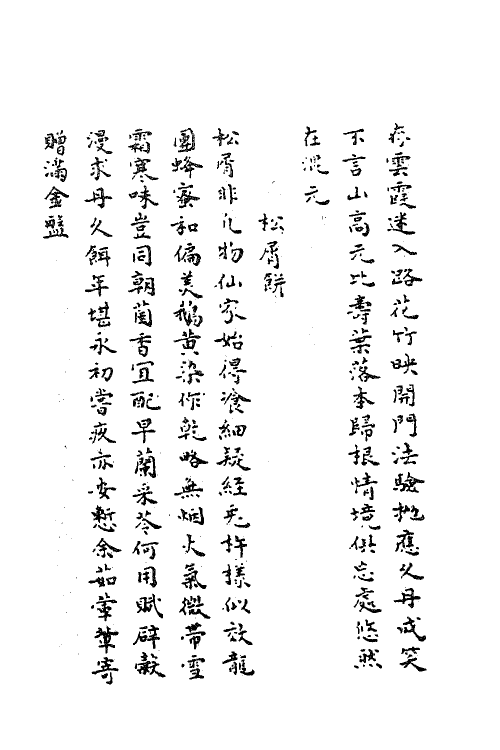 存雲霞迷入路花竹映開門法驗桃應久丹成笑
不言山高元比壽葉落本歸根情境俱忘處悠然
在混元
松屑餅
松屑非凡物仙家始得飡細疑經兎杵樣似放龍
團蜂蜜和偏美鵝黄染作乾略無烟火氣微帶雪
霜寒味豈同朝菌香宜配早蘭采苓何用賦辟糓
漫求丹久餌年堪永初嘗疾亦安慙余茹葷輩寄
贈滿金盤